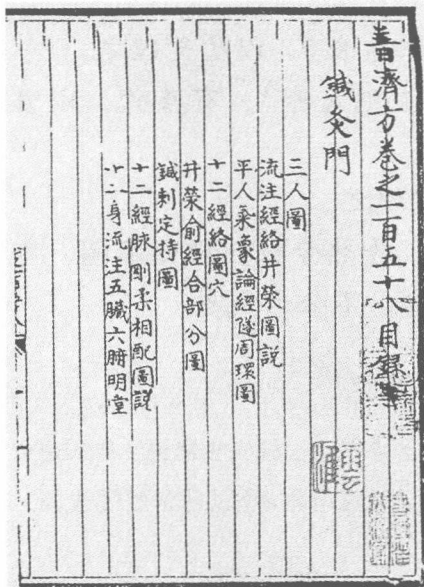 普濟方卷之一百五十八目錄
鍼灸門
三人圖
流注經絡井滎圖說
平人氣象論經隧周環圖
十二經絡圖穴
井滎俞經合部分圖
鍼刺定時圖
十二經脉剛柔相配圖說
十二身流注五臟六腑明堂